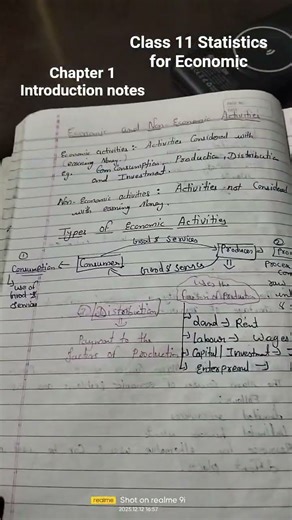 Class 11 Statistics
for Economic
Chapter 1
Introduction notes
Economic and Non Economic Activities
Economic activities : Activities Considered with
earning Money.
eg. Consumption, Production, Distribution
and Investment.
Non. Economic activities : Activities not Considered
with earning Money.
Types of Economic Activities
Good & Services
① Consumption ← Consumer Producer ②
Good & Service
use of
Good & 
Service
uses the
factors of Production
③ Distribution
Payment to the
factors of Production
Land → Rent
Labour → Wages
Capital | Investment →
Enterprenel →
realme Shot on realme 9i
2025.12.12 16:57